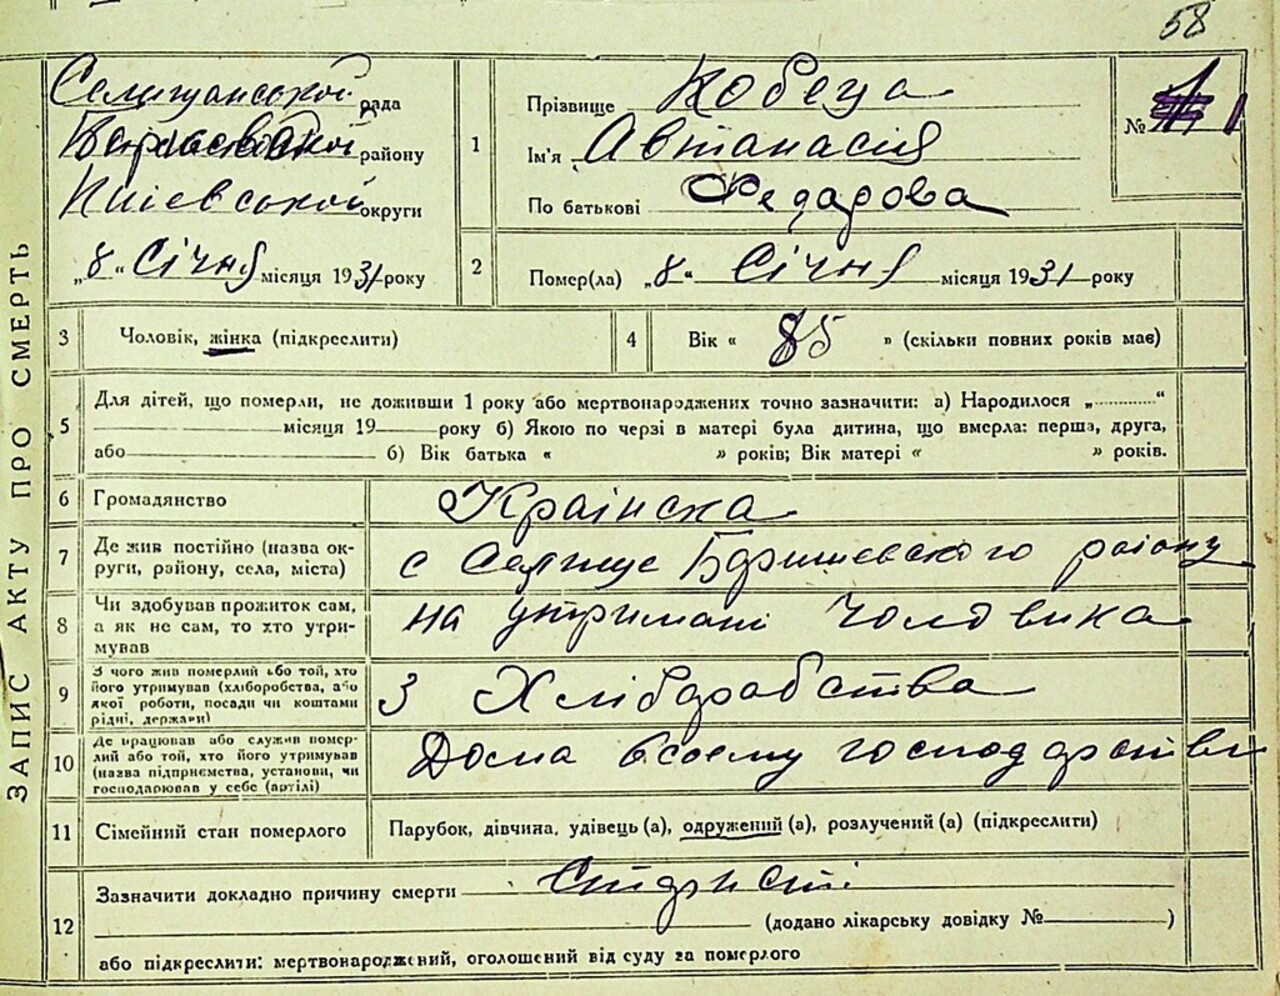 58
ЗАПИС АКТУ ПРО СМЕРТЬ
Селищанської рада
району
Київської округи
„8“ Січня місяця 1931 року
1
Прізвище Кобеца
Ім'я Автанасія
По батькові Федарова
№ 1
2
Помер(ла) „8“ Січня місяця 1931 року
3
Чоловік, жінка (підкреслити)
4
Вік « 85 » (скільки повних років має)
5
Для дітей, що померли, не доживши 1 року або мертвонароджених точно зазначити: а) Народилося „ “
місяця 19 року б) Якою по черзі в матері була дитина, що вмерла: перша, друга,
або б) Вік батька « » років; Вік матері « » років.
6
Громадянство
Украінска
7
Де жив постійно (назва ок-
руги, району, села, міста)
с Селище Баришевского району
8
Чи здобував прожиток сам,
а як не сам, то хто утри-
мував
на утримані чоловика
9
З чого жив померлий або той, хто
його утримував (хліборобства, або
якої роботи, посади чи коштами
рідні, держави)
З Хлібарабства
10
Де працював або служив помер-
лий або той, хто його утримував
(назва підприємства, установи, чи
господарював у себе (артілі)
Дома в своему господарстви
11
Сімейний стан померлого
Парубок, дівчина, удівець (а), одружений (а), розлучений (а) (підкреслити)
12
Зазначити докладно причину смерти
(додано лікарську довідку № )
або підкреслити: мертвонароджений, оголошений від суду за померлого